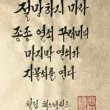 절망하지 마라
종종 열쇠 꾸러미의
마지막 열쇠가
자물쇠를 연다
필립 체스터필드